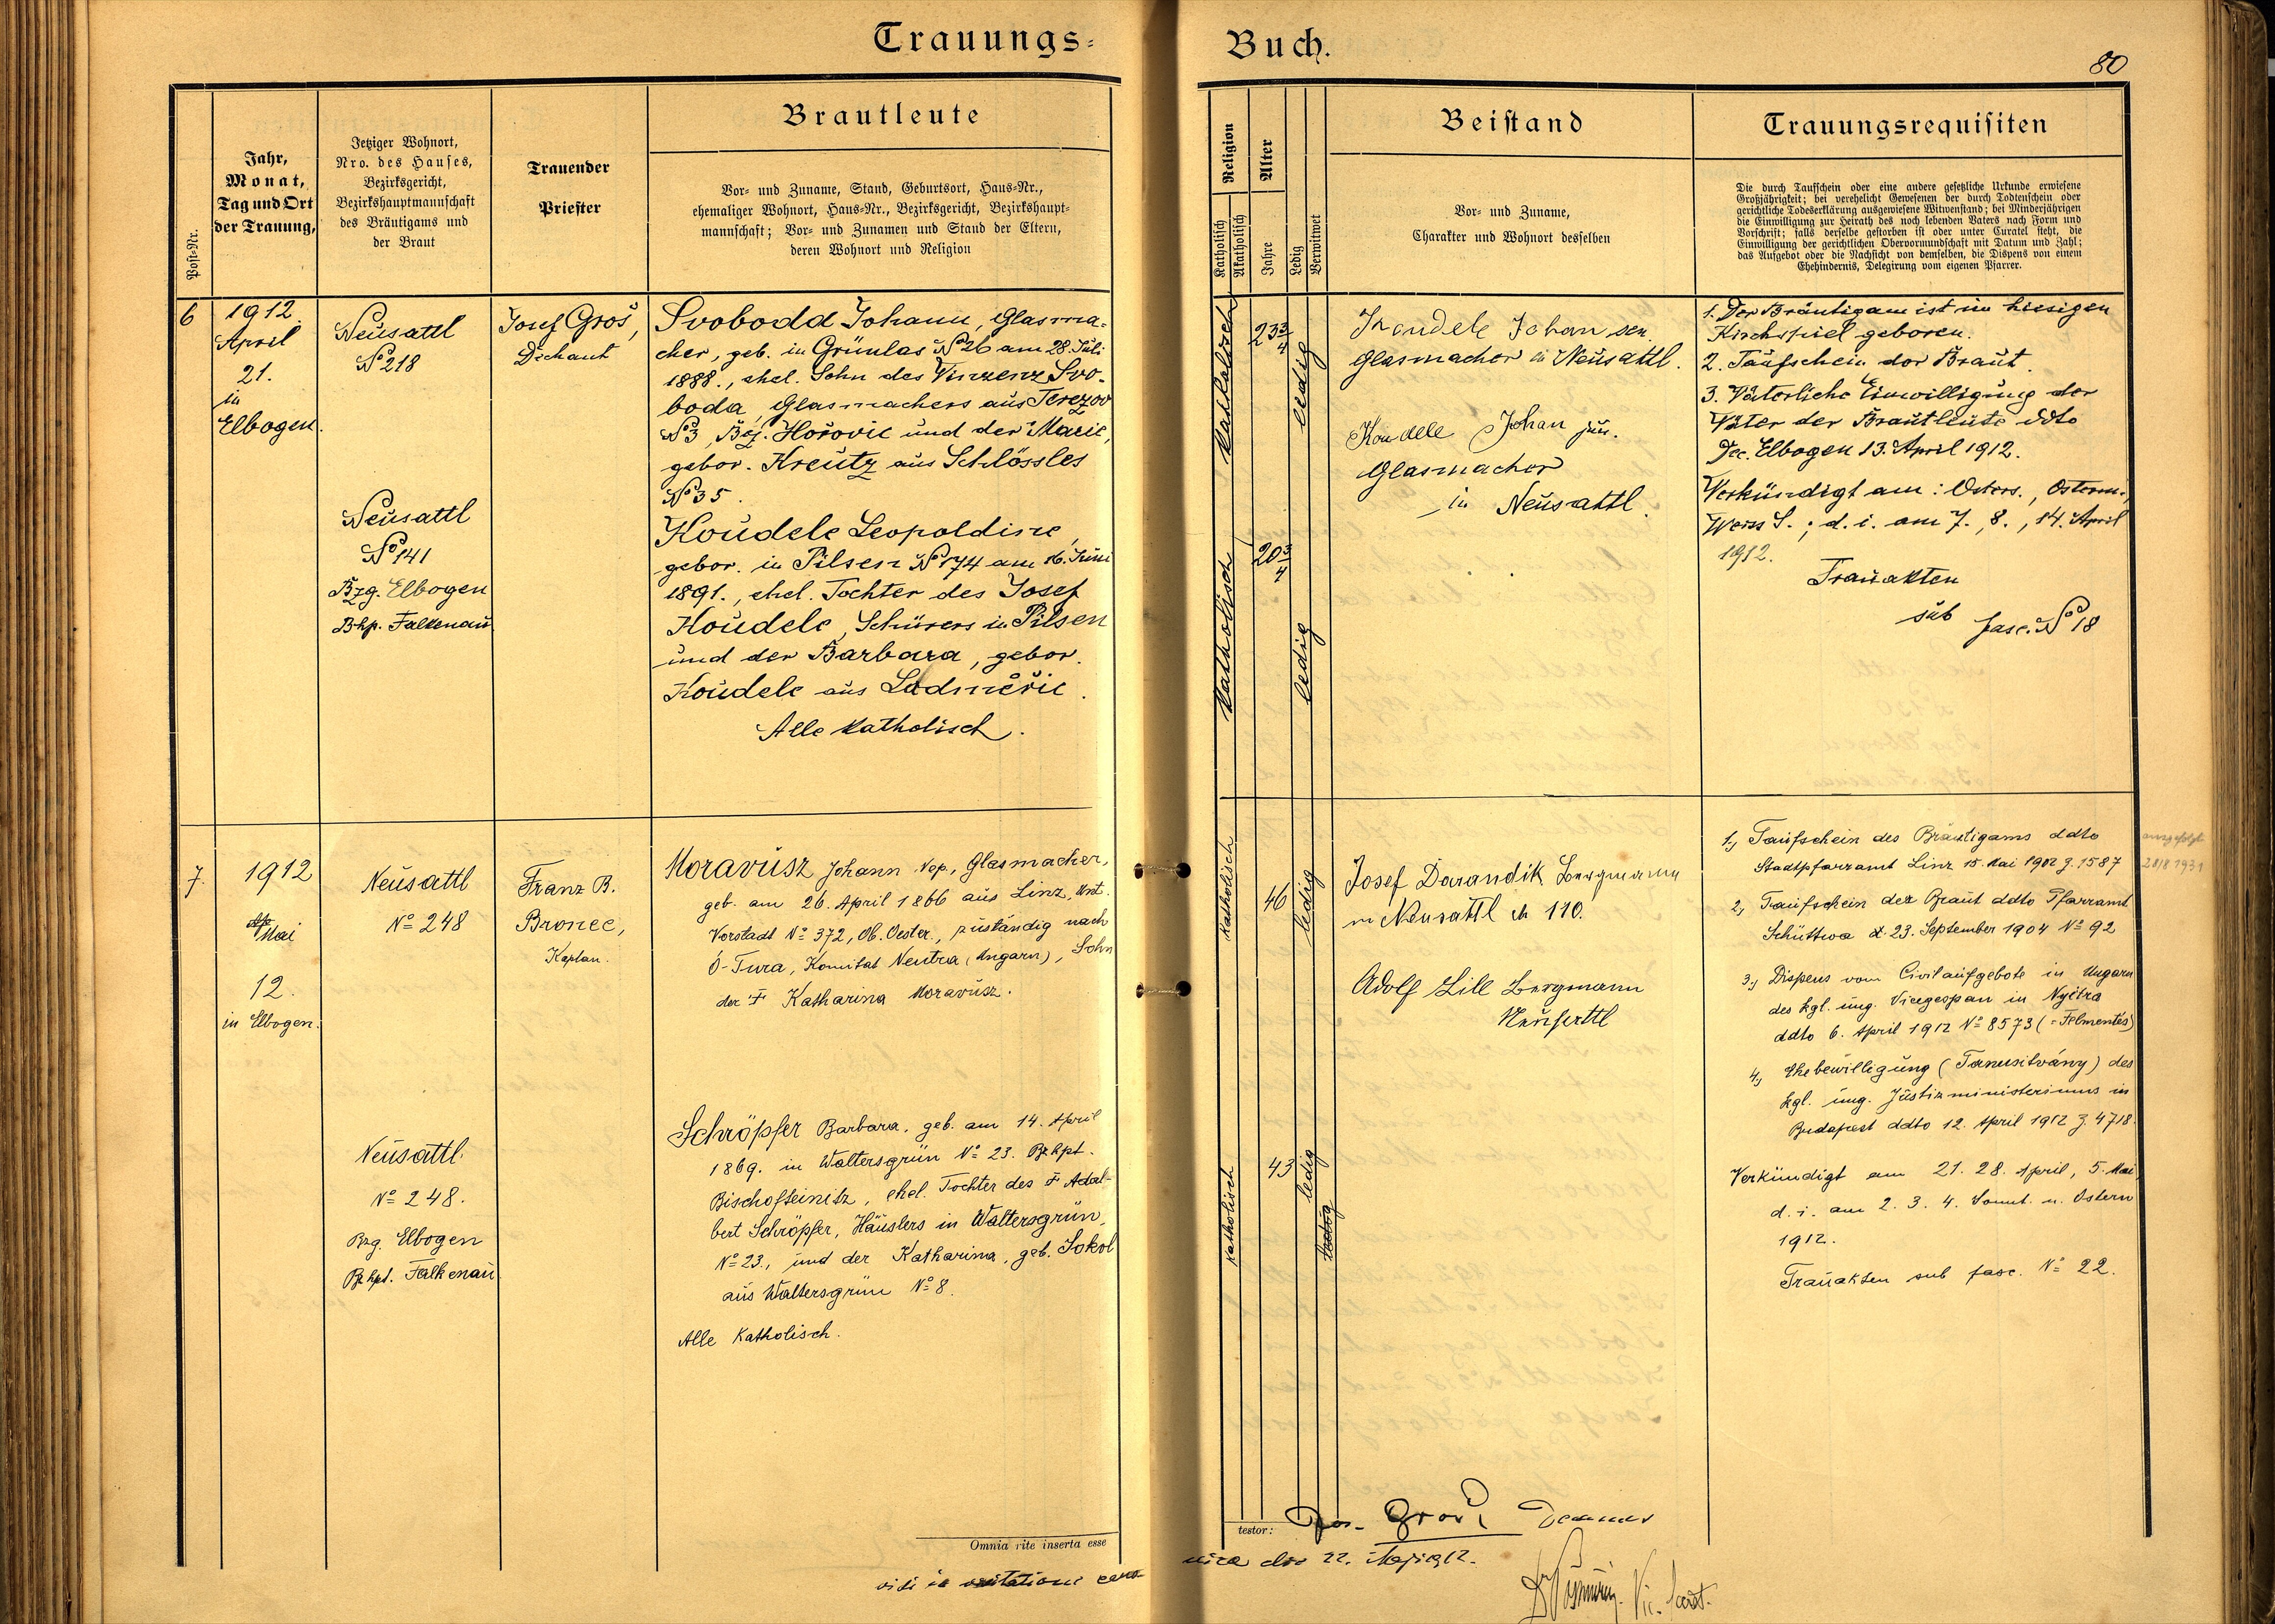 Trauungs-
Buch.
80
Post-Nr.
Jahr,
Monat,
Tag und Ort
der Trauung,
Jetziger Wohnort,
Nro. des Hauses,
Bezirksgericht,
Bezirkshauptmannschaft
des Bräutigams und
der Braut
Trauender
Priester
Brautleute
Vor- und Zuname, Stand, Geburtsort, Haus-Nr.,
ehemaliger Wohnort, Haus-Nr., Bezirksgericht, Bezirkshaupt-
mannschaft; Vor- und Zunamen und Stand der Eltern,
deren Wohnort und Religion
Religion
Katholisch
Akatholisch
Alter
Jahre
Ledig
Verwitwet
Beistand
Vor- und Zuname,
Charakter und Wohnort desselben
Trauungsrequisiten
Die durch Taufschein oder eine andere gesetzliche Urkunde erwiesene
Großjährigkeit; bei verehelicht Gewesenen der durch Todtenschein oder
gerichtliche Todeserklärung ausgewiesene Witwenstand; bei Minderjährigen
die Einwilligung zur Heirath des noch lebenden Vaters nach Form und
Vorschrift; falls derselbe gestorben ist oder unter Curatel steht, die
Einwilligung der gerichtlichen Obervormundschaft mit Datum und Zahl;
das Aufgebot oder die Nachsicht von demselben, die Dispens von einem
Ehehindernis, Delegirung vom eigenen Pfarrer.
6
1912.
April
21.
in
Elbogen.
Neusattl
No 218
Neusattl
No 141
Bzg. Elbogen
Bhp. Falkenau
Josef Groš,
Dechant
Svoboda Johann, Glasma-
cher, geb. in Grünlas No 26 am 28. Juli
1888., ehel. Sohn des Vinzenz Svo-
boda, Glasmachers aus Terezov
No 3, Bez. Hořovic und der Marie,
gebor. Kreutz aus Schlössles
No 35.
Koudele Leopoldine,
gebor. in Pilsen No 174 am 16. Juni
1891., ehel. Tochter des Josef
Koudele, Schürers in Pilsen
und der Barbara, gebor.
Koudele aus Ladměřic.
Alle katholisch.
katholisch
23 3/4
ledig
katholisch
20 3/4
ledig
Koudele Johan sen.
Glasmacher in Neusattl.
Koudele Johan jun.
Glasmacher
in Neusattl.
1. Der Bräutigam ist im hiesigen
Kirchspiel geboren.
2. Taufschein der Braut.
3. Väterliche Einwilligung der
Väter der Brautleute ddto
Dec. Elbogen 13. April 1912.
Verkündigt am: Osters., Osterm.,
Weiss S.; d. i. am 7., 8., 14. April
1912.
Trauakten
sub fasc. No 18
7.
1912
Mai
12.
in Elbogen.
Neusattl
No 248
Neusattl
No 248.
Bzg. Elbogen
Bzhpt. Falkenau
Franz B.
Bronec,
Kaplan.
Moravusz Johann Nep., Glasmacher,
geb. am 26. April 1866 aus Linz, Unt.
Vorstadt No 372, Ob. Oester., zuständig nach
Ó-Tura, Komitat Neutra (Ungarn), Sohn
der † Katharina Moravusz.
Schröpfer Barbara, geb. am 14. April
1869. in Waltersgrün No 23. Bzhpt.
Bischofteinitz, ehel. Tochter des † Adal-
bert Schröpfer, Häuslers in Waltersgrün,
No 23., und der Katharina, geb. Sokol
aus Waltersgrün No 8.
Alle katholisch.
katholisch
46
ledig
katholisch
43
ledig
Josef Darandik Bergmann
in Neusattl N 110.
Adolf Lill Bergmann
Neusattl
1., Taufschein des Bräutigams ddto
Stadtpfarramt Linz 15. Mai 1902 Z. 1587
2., Taufschein der Braut ddto Pfarramt
Schüttwa d. 23. September 1904 No 92
3., Dispens vom Civilaufgebote in Ungarn
des kgl. ung. Vicegespan in Nyitra
ddto 6. April 1912 No 8573 (=Felmentés)
4., Ehebewilligung (Tanusitvány) des
kgl. ung. Justizministeriums in
Budapest ddto 12. April 1912 Z. 4718.
Verkündigt am 21. 28. April, 5. Mai,
d. i. am 2. 3. 4. Sonnt. n. Ostern
1912.
Trauakten sub fasc. No 22.
28/8 1931
Omnia rite inserta esse
testor:
Jos. Groš